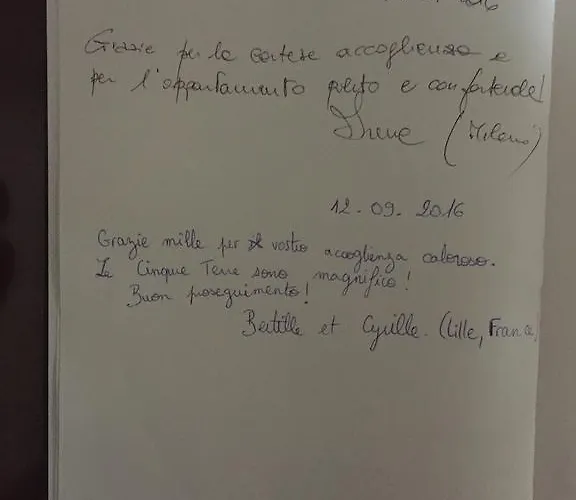 16
Grazie per la cortese accoglienza e
per l'appartamento pulito e confortevole!
Irene (Milano)
12.09.2016
Grazie mille per vostro accoglienza caloroso.
Le Cinque Terre sono magnifico!
Buon proseguimento!
Bertille et Cyrille. (Lille, France,